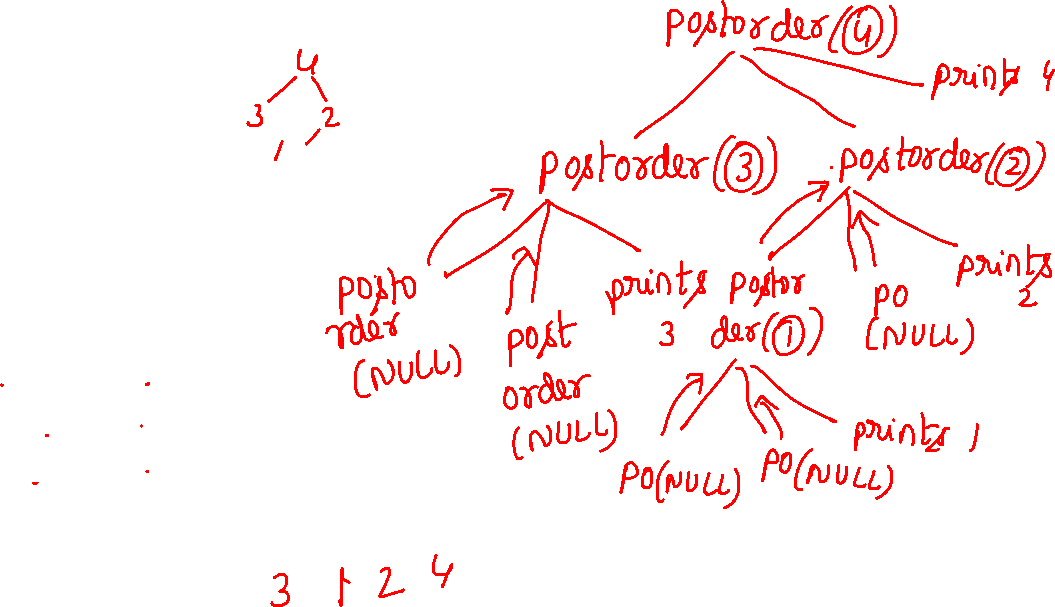 postorder(4)
4
prints 4
3 2
1
postorder(3) postorder(2)
posto
rder
(NULL)
post
order
(NULL)
prints
3
postor
der(1)
PO
(NULL)
prints
2
PO(NULL) PO(NULL) prints 1
3 1 2 4